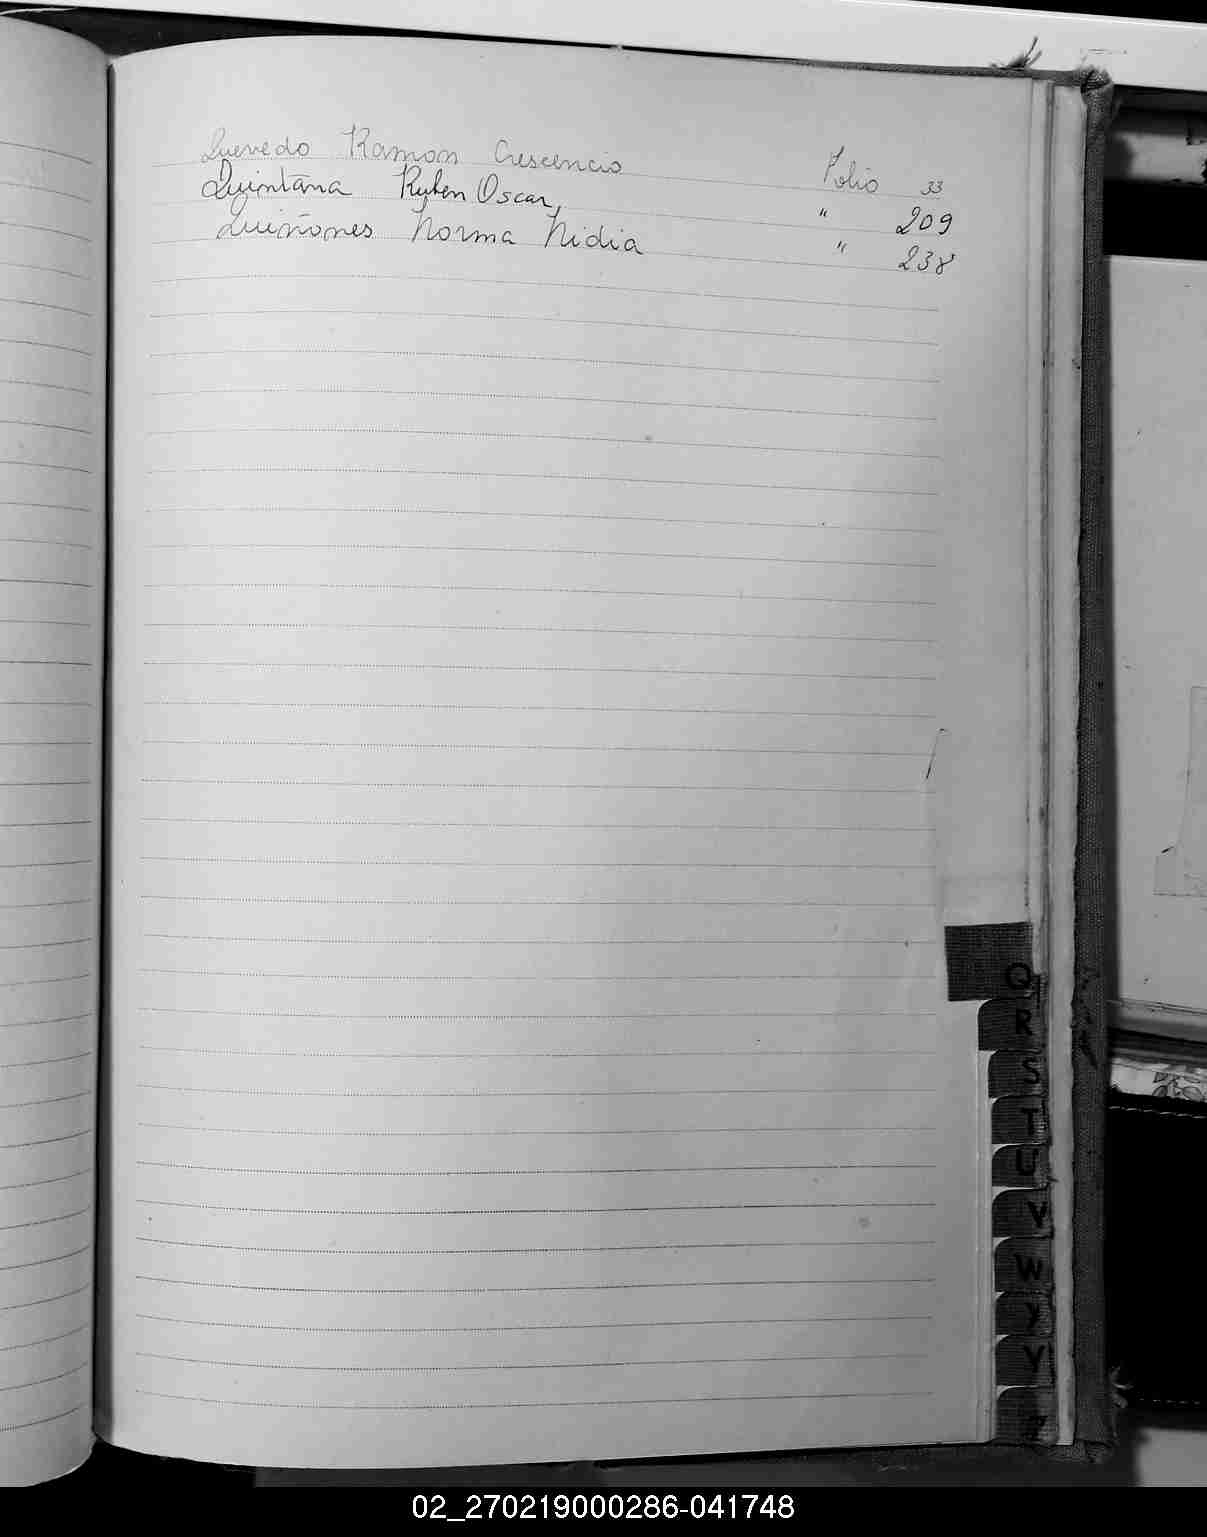 Quevedo Ramon Crescencio Folio 33
Quintana Ruben Oscar, " 209
Quiñones Norma Nidia " 238
Q
R
S
T
U
V
W
Y
02_270219000286-041748